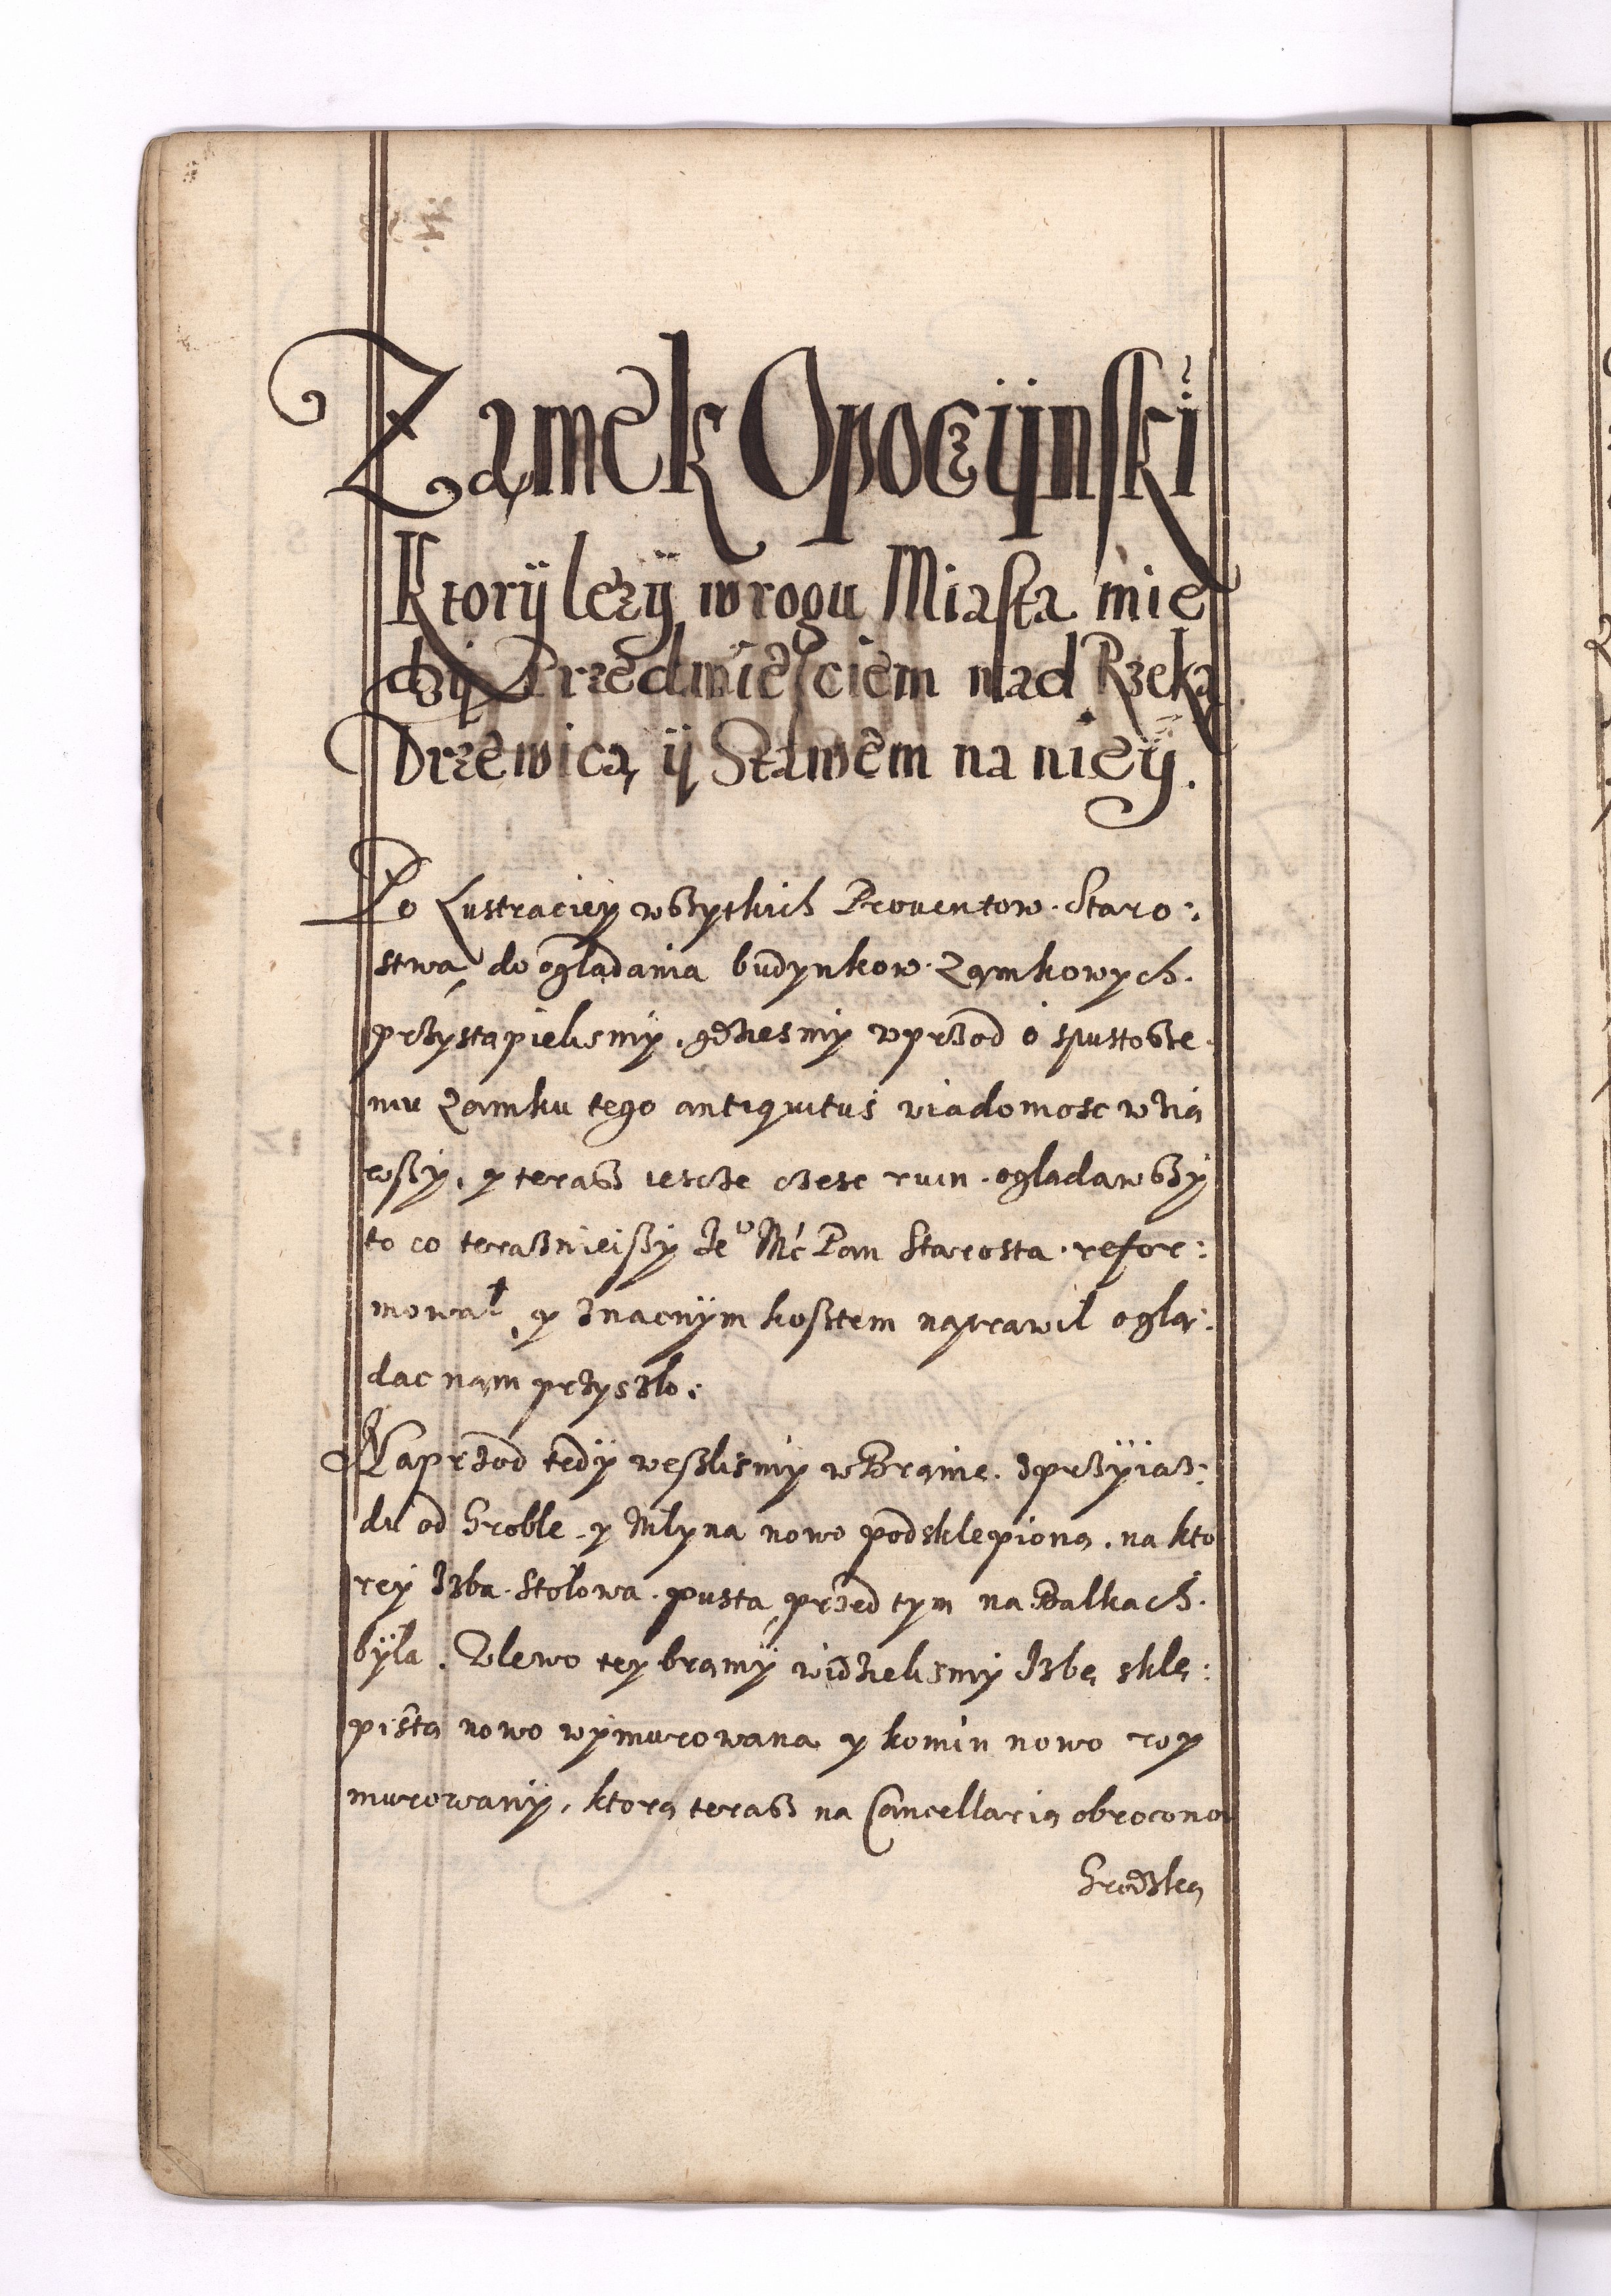 Zamek Opoczÿnski
Ktorÿ lezÿ w rogu Miasta mie
dzÿ Przedmiesciem nad Rzeką
Drzewicą ÿ Stawem na nieÿ.
Po Lustraciey wszytkich Prouentow Staro:
stwa, do oglądania budynkow Zamkowych.
przystąpielismy, gdziesmy wprzod o spustosze
niu Zamku tego antiquitus wiadomosc wzią
wszy, y terasz iescze czesc ruin ogladawszy
to co terasznieiszy Je⁰ Mć Pan Starosta refor:
mował, y znacnym kosztem naprawil oglą:
dac nam przyszlo:
Naprzod tedy weszlismy w Bramę, z przyiaz:
du od Groble y Mlyna nowo podsklepioną, na kto
rey Izba Stołowa pusta przed tym na Balkach
była. W lewo tey bramy widzielismy Izbę sklę:
pistą nowo wymurowana y komin nowo wy
murowany, ktorą terasz na Cancellarią obrocono
Grodzką